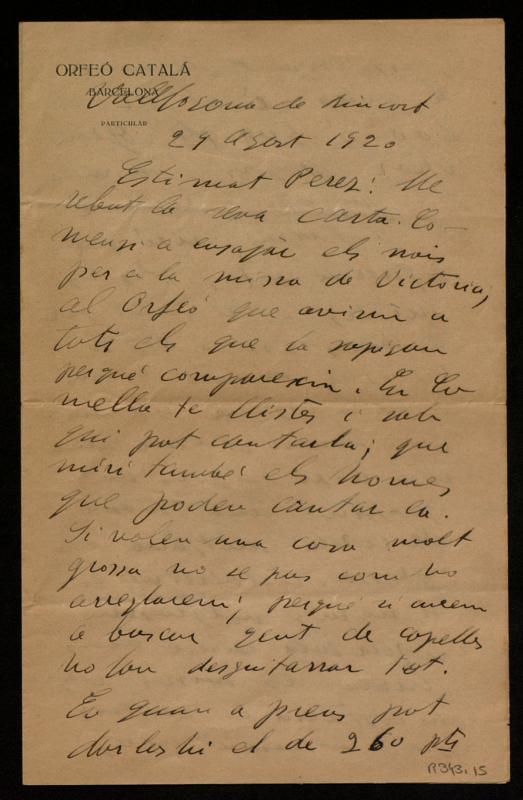 ORFEÓ CATALÁ
BARCELONA
PARTICULAR
Vallfogona de Riucorp
29 Agost 1920
Estimat Perez: He
rebut la seva carta. Co-
mensi a ensajar els nois
per a la missa de Victoria,
al Orfeó que avisin a
tots els que la sapigan
perqué comparexin. En Co
mella te llistes i sab
qui pot cantarla; que
miri també els homes
que poden cantar la.
Si volen una cosa molt
grossa no se pas com ho
arreglarem; perqué si anem
a buscar gent de capelles
ho fan desguitarrar tot.
En quan a preus pot
dor les hi el de 260 pts
R343.15